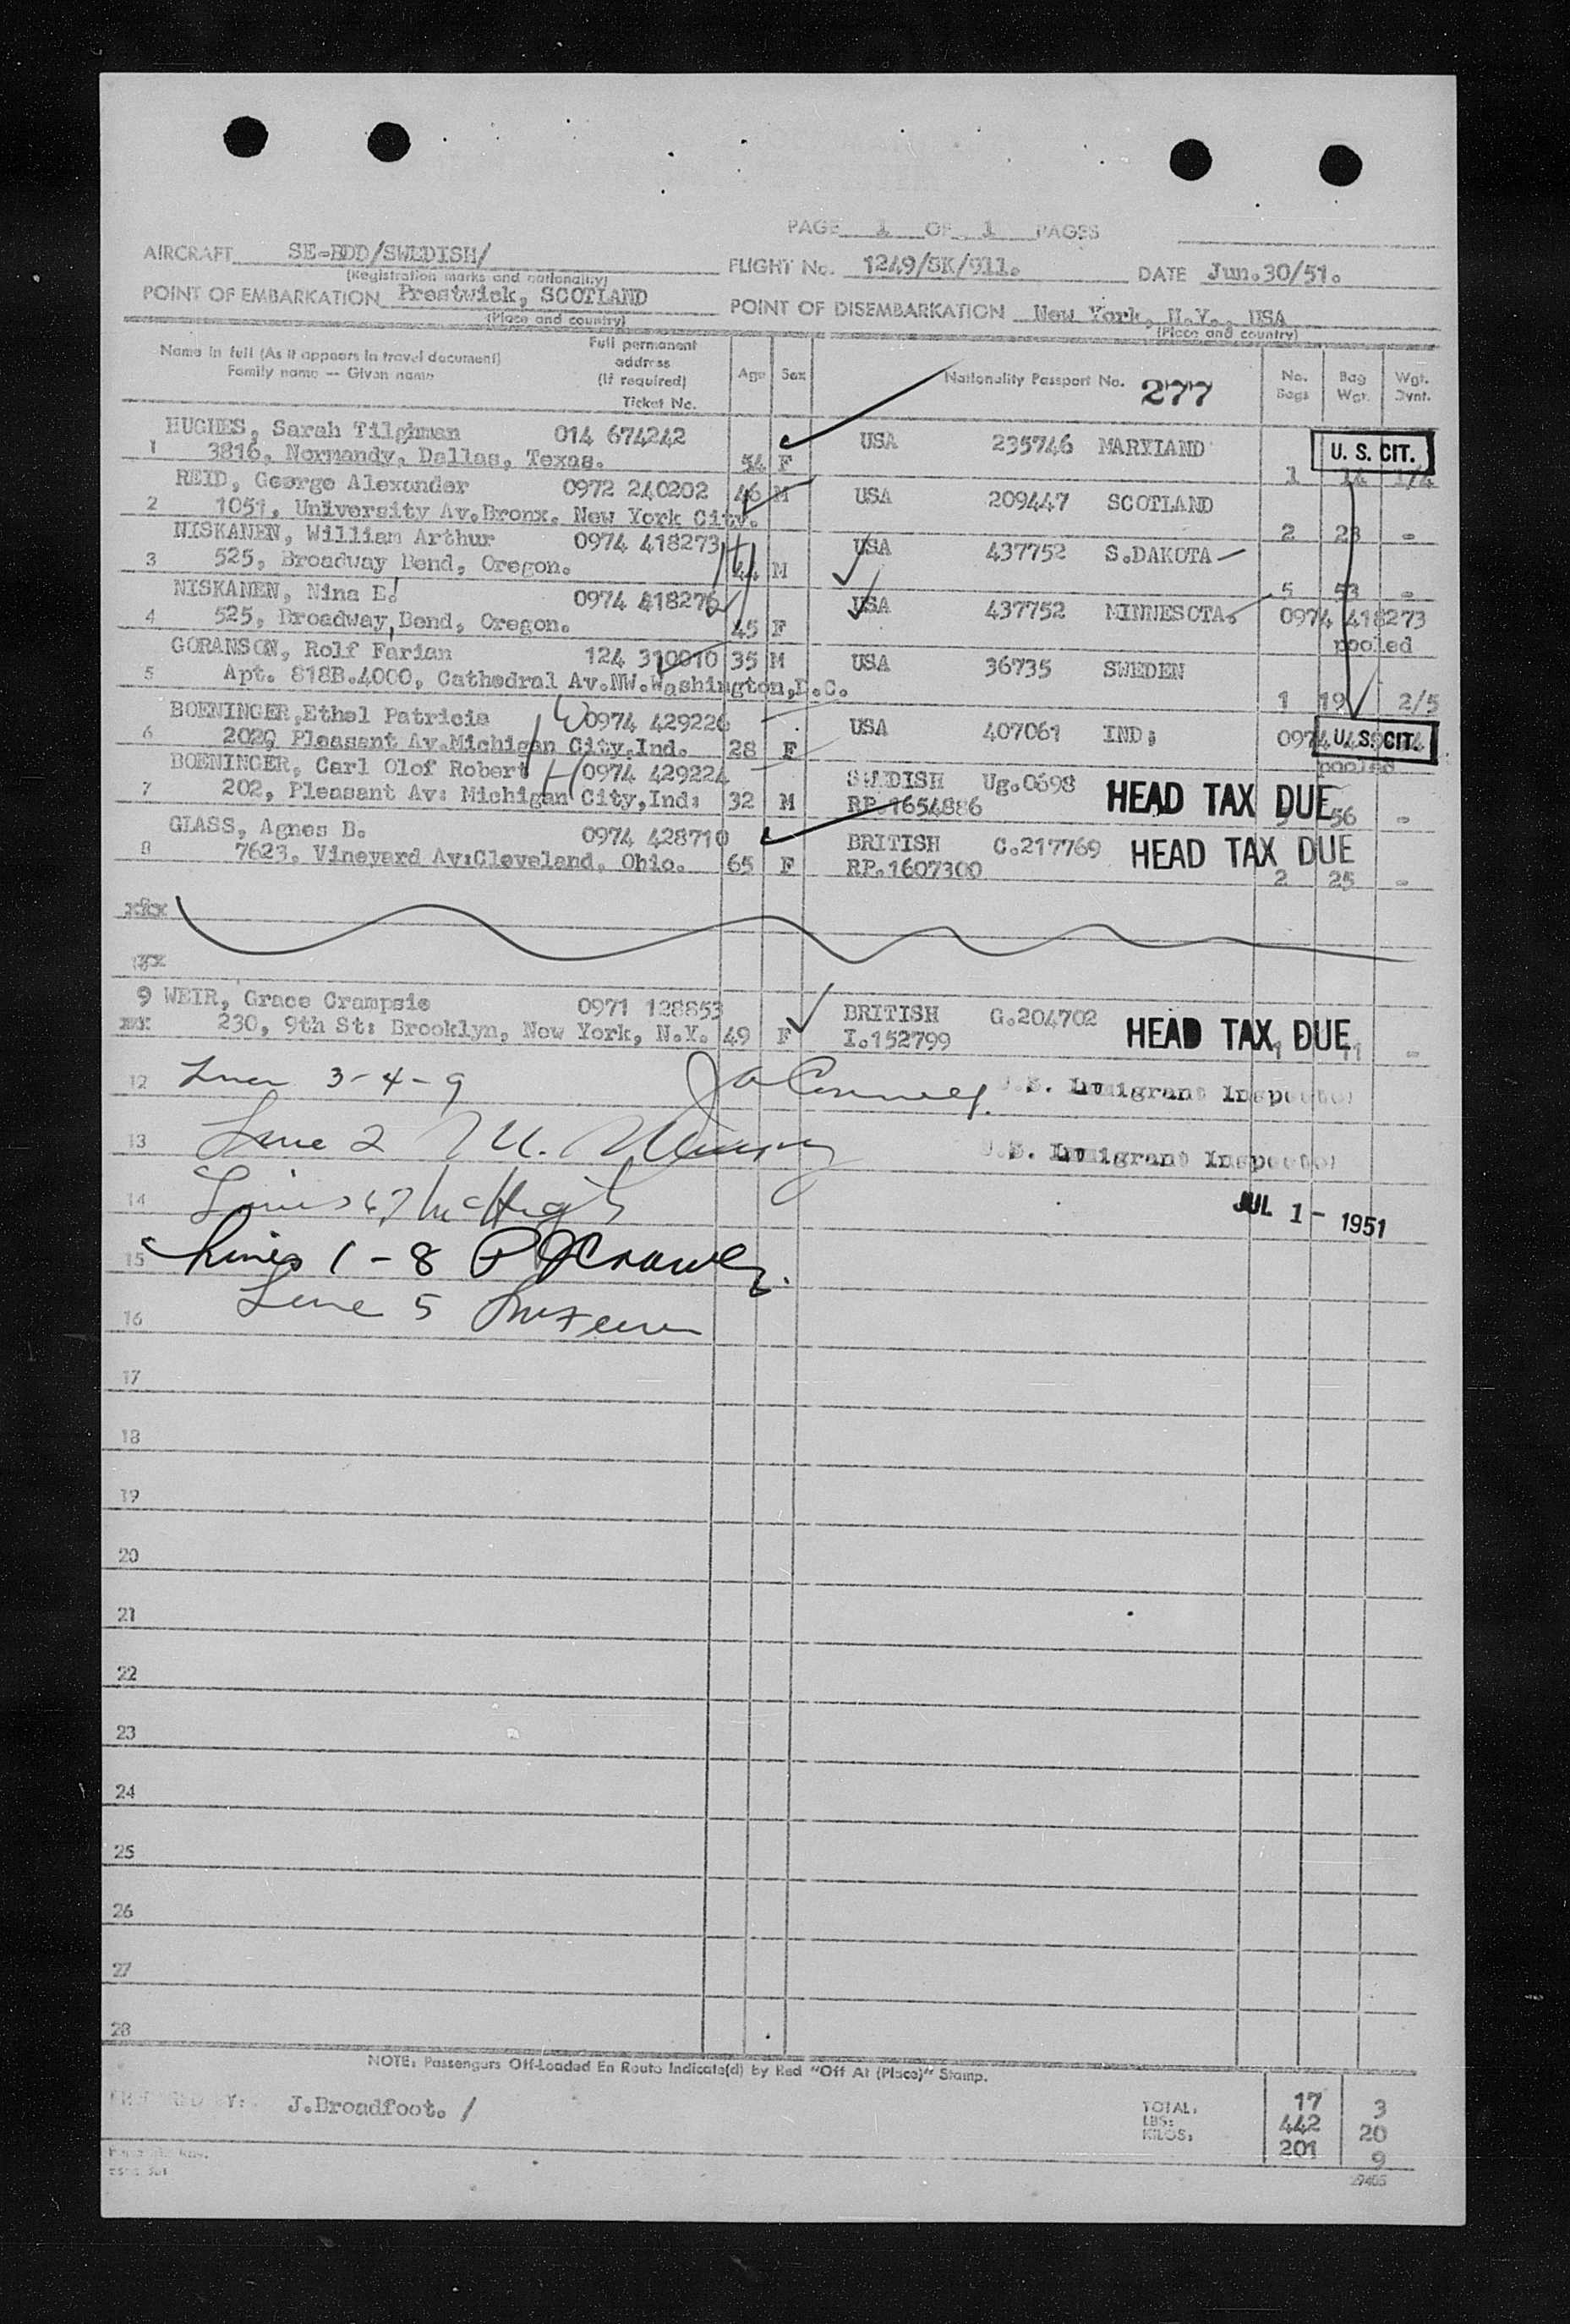 PAGE 1 OF 1 PAGES
AIRCRAFT SE-BDD/SWEDISH/ FLIGHT No. 1249/SK/911. DATE Jun.30/51.
(Registration marks and nationality)
POINT OF EMBARKATION Prestwick, SCOTLAND POINT OF DISEMBARKATION New York, N.Y., USA
(Place and country) (Place and country)
Name in full (As it appears in travel document) Full permanent address (If required) Age Sex Nationality Passport No. 277 No. Bags Bag Wgt. Wgt.
Family name -- Given name Ticket No.
HUGHES, Sarah Tilghman 014 674242 USA 235746 MARYLAND U. S. CIT.
1 3816, Normandy, Dallas, Texas. 54 F 1 14 1/4
REID, George Alexander 0972 240202 46 M USA 209447 SCOTLAND
2 1051, University Av.Bronx, New York City. 2 23 -
NISKANEN, William Arthur 0974 418273 USA 437752 S.DAKOTA
3 525, Broadway Bend, Oregon. 44 M 5 53 -
NISKANEN, Nina E. 0974 418276 USA 437752 MINNESOTA. 0974 418273
4 525, Broadway, Bend, Oregon. 45 F pooled
GORANSON, Rolf Farian 124 310010 35 M USA 36735 SWEDEN
5 Apt. 818B.4000, Cathedral Av.NW.Washington,D.C. 1 19 2/5
BOENINGER,Ethel Patricia W 0974 429226 USA 407061 IND; 0974 U. S. CIT.
6 202, Pleasant Av.Michigan City,Ind. 28 F pooled
BOENINGER, Carl Olof Robert H 0974 429224 SWEDISH Ug.0698 HEAD TAX DUE
7 202, Pleasant Av: Michigan City,Ind: 32 M RP.1654886 56 -
GLASS, Agnes B. 0974 428710 BRITISH C.217769 HEAD TAX DUE
8 7623, Vineyard Av:Cleveland, Ohio. 65 F RP.1607300 2 25 -
9 WEIR, Grace Crampsie 0971 128853 BRITISH G.204702 HEAD TAX DUE
230, 9th St: Brooklyn, New York, N.Y. 49 F I.152799 1 11 -
12 3-4-9 U.S. Immigrant Inspector
13 Line 2 U.S. Immigrant Inspector
14 Lines 67 McHugh JUL 1 - 1951
15 Lines 1-8
16 Line 5
17
18
19
20
21
22
23
24
25
26
27
28
NOTE: Passengers Off-Loaded En Route Indicate(d) by Red "Off At (Place)" Stamp.
PREPARED BY: J.Broadfoot. / TOTAL: 17 3
LBS: 442 20
KILOS: 201 9
29405